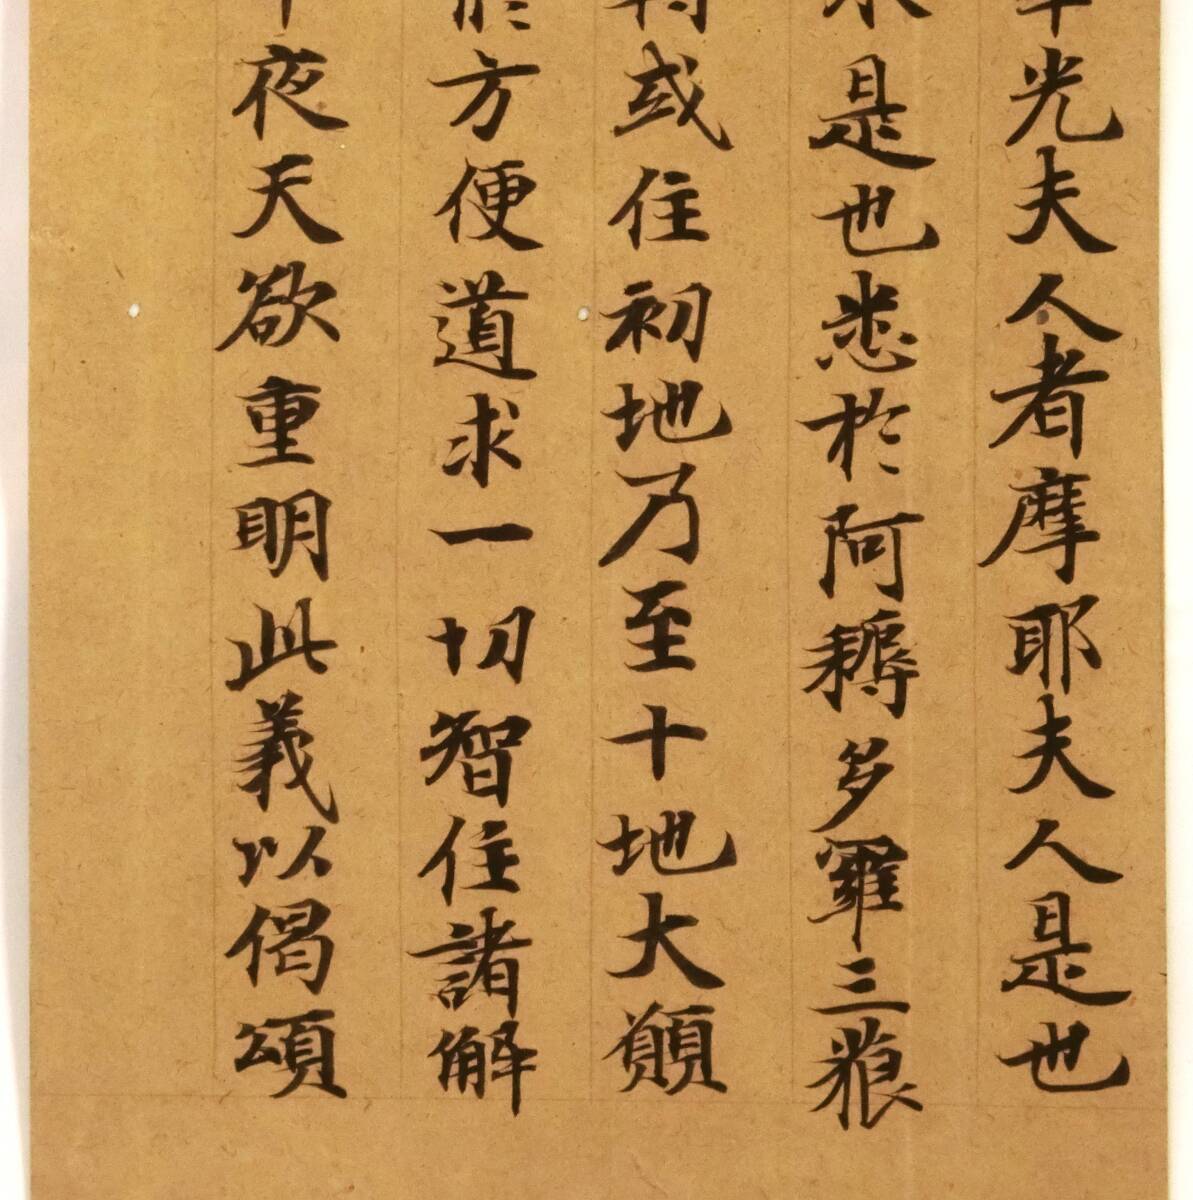 光夫人者摩耶夫人是也
是也悉於阿耨多羅三藐
或住初地乃至十地大願
於方便道求一切智住諸解
夜天欲重明此義以偈頌